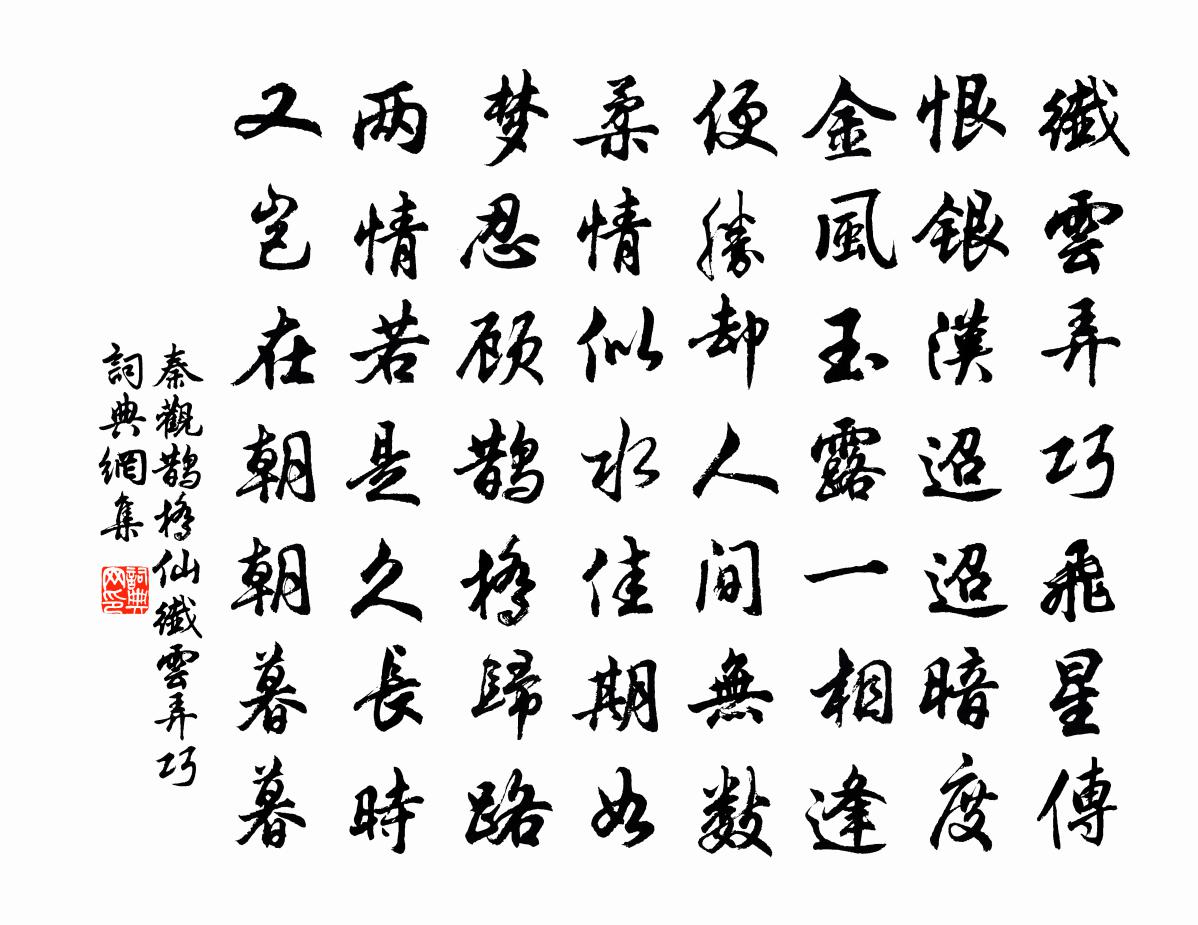 纖雲弄巧飛星傳
恨銀漢迢迢暗度
金風玉露一相逢
便勝却人间無数
柔情似水佳期如
梦忍顾鹊橋歸路
两情若是久長時
又岂在朝朝暮暮
秦觀鹊橋仙纖雲弄巧
詞典網集
詞典
网印